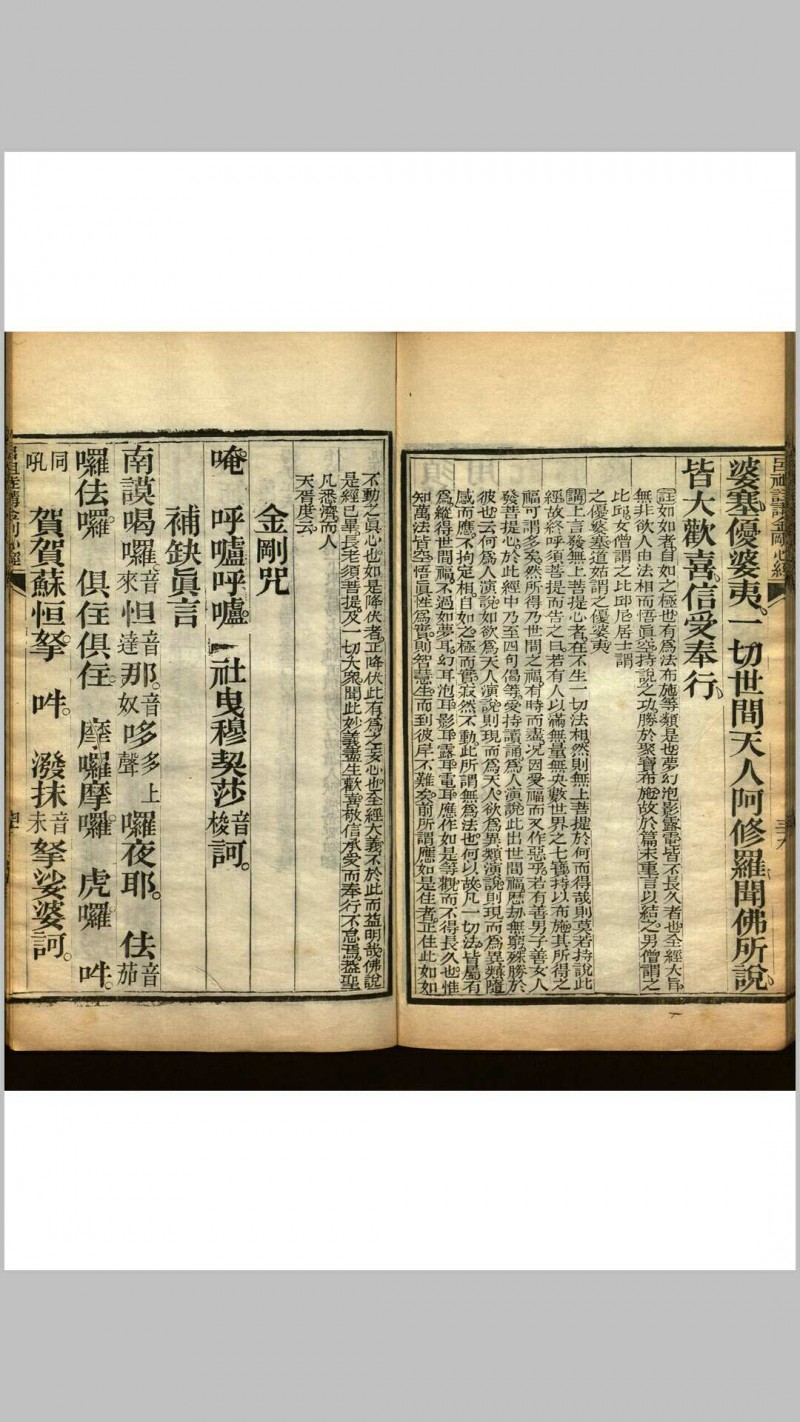 婆塞。優婆夷。一切世間天人阿修羅。聞佛所說。
皆大歡喜。信受奉行。
註如如者自如之極也有爲法布施等類是也夢幻泡影露電皆不長久者也全經大旨
無非欲人由法相而悟眞空持說之功勝於聚寶布施故於篇末重言以結之男僧謂之
比邱女僧謂之比邱尼居士謂
之優婆塞道姑謂之優婆夷
講上言發無上菩提心者在不生一切法相然則無上菩提於何而得哉則莫若持說此
經故終呼須菩提而告之曰若有人以滿無量無央數世界之七寶持以布施其所得之
福可謂多矣然所得乃世間之福有時而盡况因愛福而又作惡乎若有善男子善女人
發菩提心於此經中乃至四句偈等受持讀誦爲人演說此出世間福歷劫無窮殊勝於
彼也云何爲人演說如欲爲天人演說則現而爲天人欲爲異類演說則現而爲異類隨
感而應不拘定相自如之極而實寂然不動此所謂無爲法也何以故凡一切法皆屬有
爲縱得世間福不過如夢耳幻耳泡耳影耳露耳電耳應作如是等觀而不得長久也惟
知萬法皆空悟眞性爲實則智慧生而到彼岸不難矣前所謂應如是住者正住此如如
不動之眞心也如是降伏者正降伏此有爲之妄心也全經大義不於此而益明哉佛說
是經已畢長老須菩提及一切大衆聞此妙義盡生歡喜敬信承受而奉行不怠焉蓋聖
凡悉濟而人
天胥度云
金剛咒
唵　呼嚧呼嚧。　社曳穆契莎音梭訶。
補缺眞言
南謨喝囉。音來怛音達那。音奴哆多上聲囉夜耶。　佉音茄
囉佉囉。　俱住俱住。　摩囉摩囉。　虎囉　吽。
同吼　賀賀蘇怛拏。　吽。　潑抹音末拏娑婆訶。